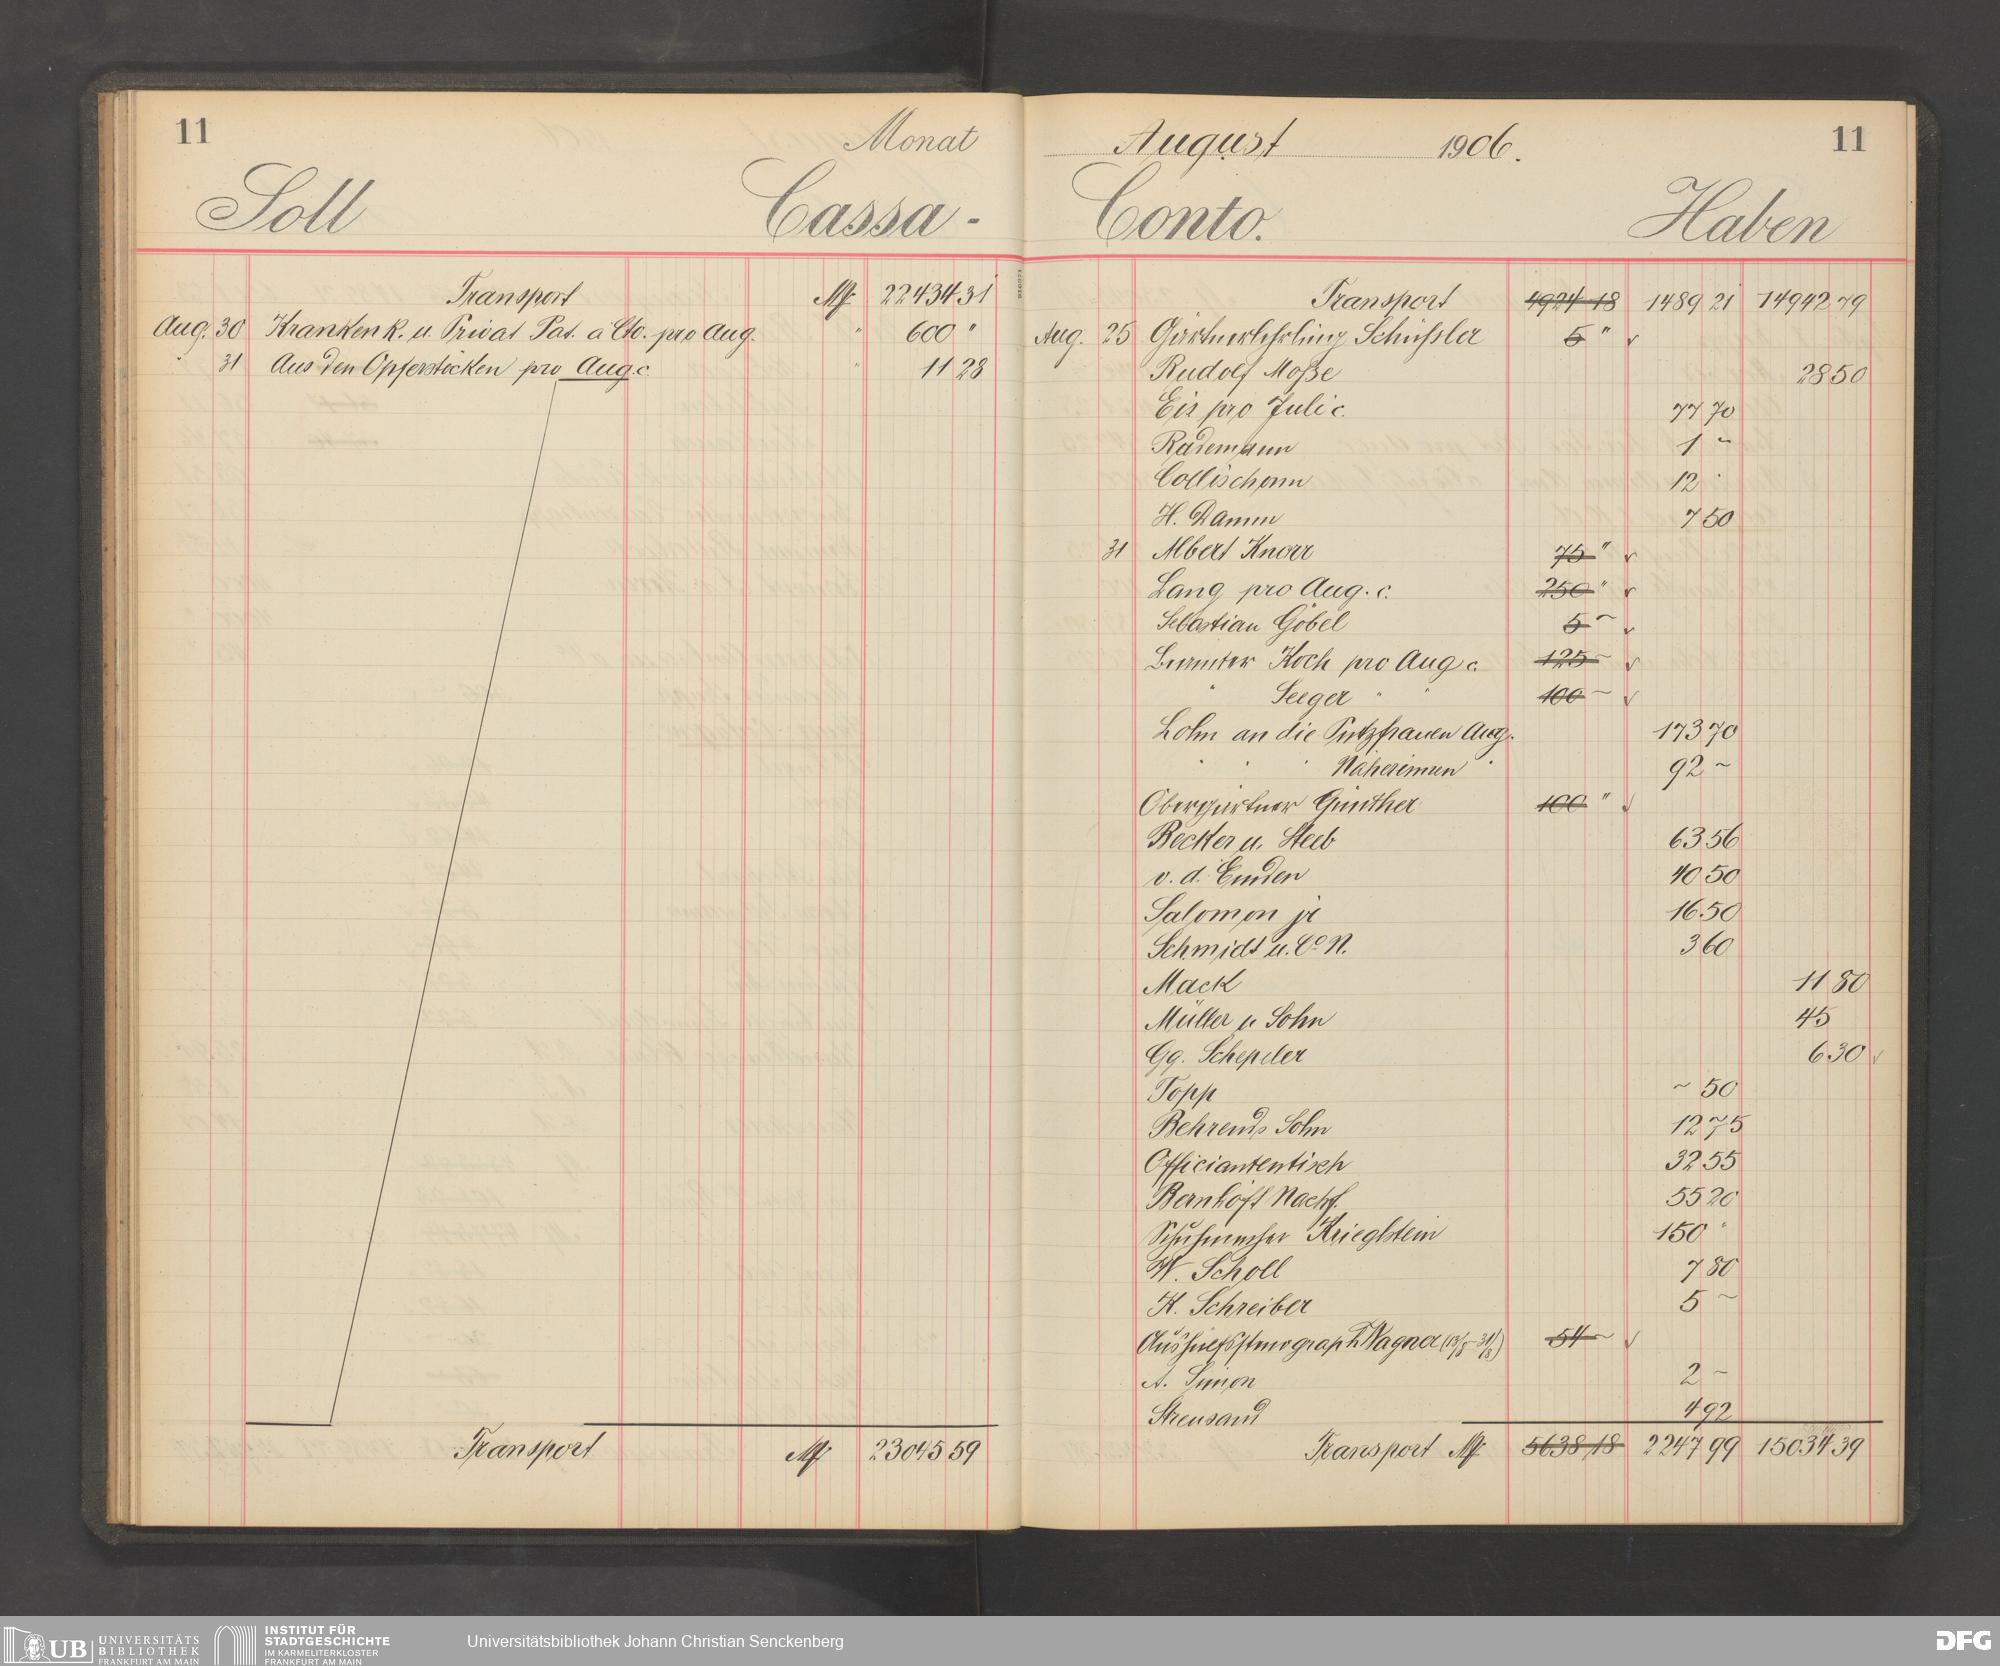 11 Monat
Soll Cassa-
Transport M 22434 31
Aug. 30 Krankenk. u. Privat Pat. a Cto. pro Aug. " 600 "
" 31 Aus den Opferstöcken pro Aug. c. " 11 28
Transport M 23045 59
August 1906. 11
Conto. Haben
Transport 4924 18 1489 21 14942 79
Aug. 25 Gärtnerlehrling Schüssler 5 "
Rudolf Moße 28 50
Eis pro Juli c. 77 70
Rademann 1 ~
Collischonn 12 "
H. Damm 7 50
31 Albert Knorr 75 "
Lang pro Aug. c. 250 "
Sebastian Göbel 5 ~
Beamter Koch pro Aug c. 125 ~
" Seeger " " 100 ~
Lohn an die Putzfrauen Aug. 173 70
" " " Näherinnen " 92 ~
Obergärtner Günther 100 "
Becker u. Steeb 63 56
v. d. Emden 40 50
Salomon jr 16 50
Schmidt u. Co N. 3 60
Mack 11 80
Müller u Sohn 45
Gg. Schepeler 6 30
Topp ~ 50
Behrends Sohn 12 75
Officiantentisch 32 55
Bernhöft Nachf. 55 20
Schuhmacher Krieglstein 150 "
W. Scholl 7 80
K. Schreiber 5 ~
Aushülfsstenograph Wagner (13/8-31/8) 54 ~
A. Simon 2 ~
Streusand 4 92
Transport M 5638 18 2247 99 15034 39
UB UNIVERSITÄTS
BIBLIOTHEK
FRANKFURT AM MAIN
INSTITUT FÜR
STADTGESCHICHTE
IM KARMELITERKLOSTER
FRANKFURT AM MAIN
Universitätsbibliothek Johann Christian Senckenberg
DFG